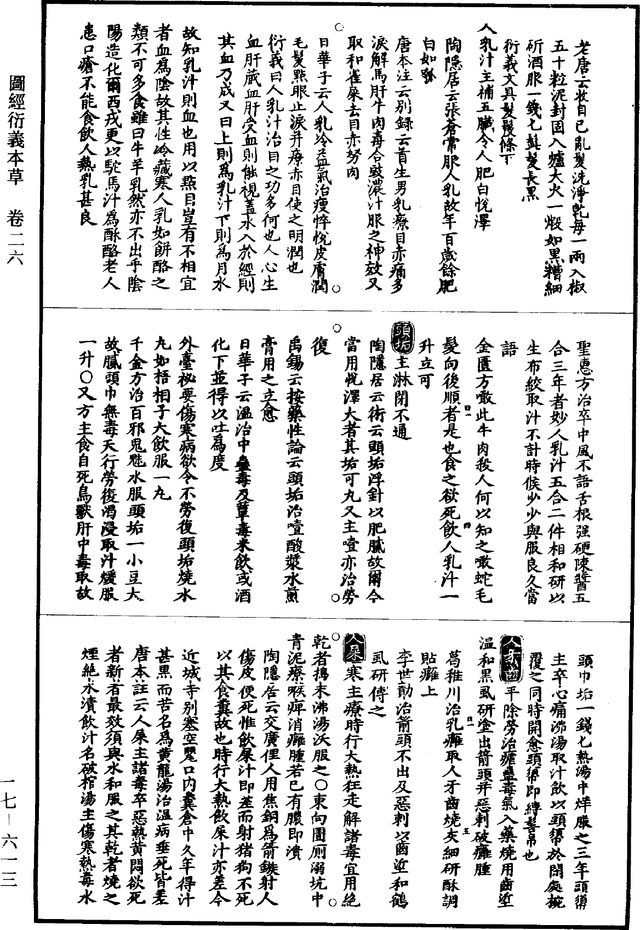 圖經衍義本草　卷二六
一七—六一三
老唐云收自己亂髮洗淨乾每一兩入椒
五十粒泥封固入爐大火一煅如黑糟細
研酒服一錢匕髭髮長黑
衍義文具髮髲條下
人乳汁主補五臟令人肥白悅澤
陶隱居云張蒼常服人乳故年百歲餘肥
白如瓠
唐本注云別錄云首生男乳療目赤痛多
淚解馬肝牛肉毒合豉濃汁服之神效又
取和雀屎去目赤努肉
日華子云人乳冷益氣治瘦悴悅皮膚潤
毛髮點眼止淚并療赤目使之明潤也
衍義曰人乳汁治目之功多何也人心生
血肝藏血肝受血則能視蓋水入於經則
其血乃成又曰上則為乳汁下則為月水
故知乳汁則血也用以點目豈有不相宜
者血為陰故其性冷臟寒人乳如餅酪之
類不可多食雖曰牛羊乳然亦不出乎陰
陽造化爾西戎更以駝馬汁為酥酪老人
患口瘡不能食飲人熱乳甚良
聖惠方治卒中風不語舌根強硬陳醬五
合三年者妙人乳汁五合二件相和研以
生布絞取汁不計時候少少與服良久當
語
金匱方啖此牛肉殺人何以知之啖蛇毛
髮向後順者是也食之欲死飲人乳汁一
升立可
頭垢主淋閉不通
陶隱居云術云頭垢浮針以肥膩故爾今
當用悅澤大者其垢可丸又主噎亦治勞
復
禹錫云按藥性論云頭垢治噎酸漿水煎
膏用之立愈
日華子云溫治中蠱毒及蕈毒米飲或酒
化下並得以吐為度
外臺秘要傷寒病欲令不勞復頭垢燒水
丸如梧桐子大飲服一丸
千金方治百邪鬼魅水服頭垢一小豆大
故膩頭巾無毒天行勞復渴浸取汁煖服
一升○又方主食自死鳥獸肝中毒取故
頭巾垢一錢匕熱湯中烊服之三年頭𢄼
主卒心痛沸湯取汁飲以頭𢄼於閉處椀
覆之同時開愈頭𢄼即縛髻帛也
人牙齒平除勞治瘧蠱毒氣入藥燒用齒垽
溫和黑虱研塗出箭頭并惡刺破癰腫
葛稚川治乳癰取人牙齒燒灰細研酥調
貼癰上
李世勣治箭頭不出及惡刺以齒垽和鶴
虱研傅之
人屎寒主療時行大熱狂走解諸毒宜用絕
乾者搗末沸湯沃服之○東向圊廁溺坑中
青泥療喉痺消癰腫若已有膿即潰
陶隱居云交廣俚人用焦銅為箭鏃射人
傷皮便死惟飲屎汁即差而射豬狗不死
以其食糞故也時行大熱飲屎汁亦差今
近城寺別塞空甖口內糞倉中久年得汁
甚黑而苦名為黃龍湯治溫病垂死皆差
唐本註云人屎主諸毒卒惡熱黃悶欲死
者新者最效須與水和服之其乾者燒之
煙絕水漬飲汁名破棺湯主傷寒熱毒水